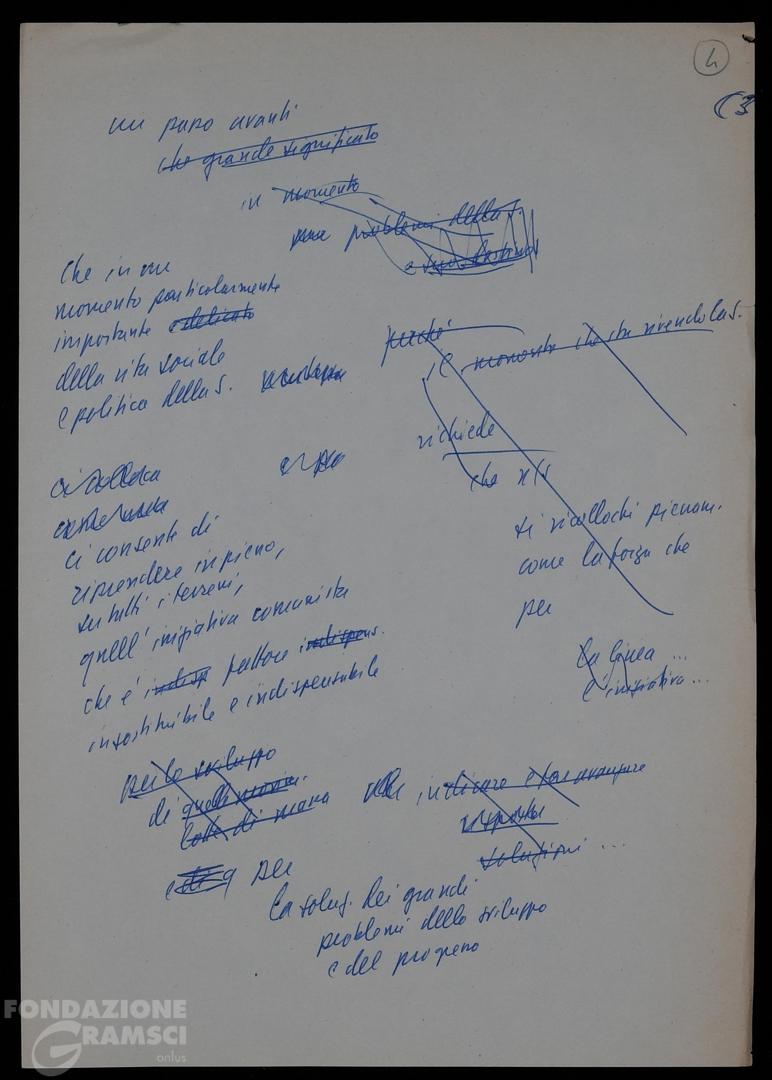 4
(3
un passo avanti
che grande significato
in momento
problemi della S.
Che in un
momento particolarmente
importante e delicato
della vita sociale
e politica della S.
perché
il momento che sta vivendo la S.
richiede
che n/s
si ricollochi pienam.
come la forza che
per
la linea ...
l'iniziativa ...
ci consente di
riprendere in pieno,
su tutti i terreni,
quell'iniziativa comunista
che è indisp fattore indispens.
insostituibile e indispensabile
per lo sviluppo
di quelle
lotte di massa
indicare e far avanzare
risposte
soluzioni ...
e di q per
la soluz. dei grandi
problemi dello sviluppo
e del progresso
FONDAZIONE
GRAMSCI
onlus